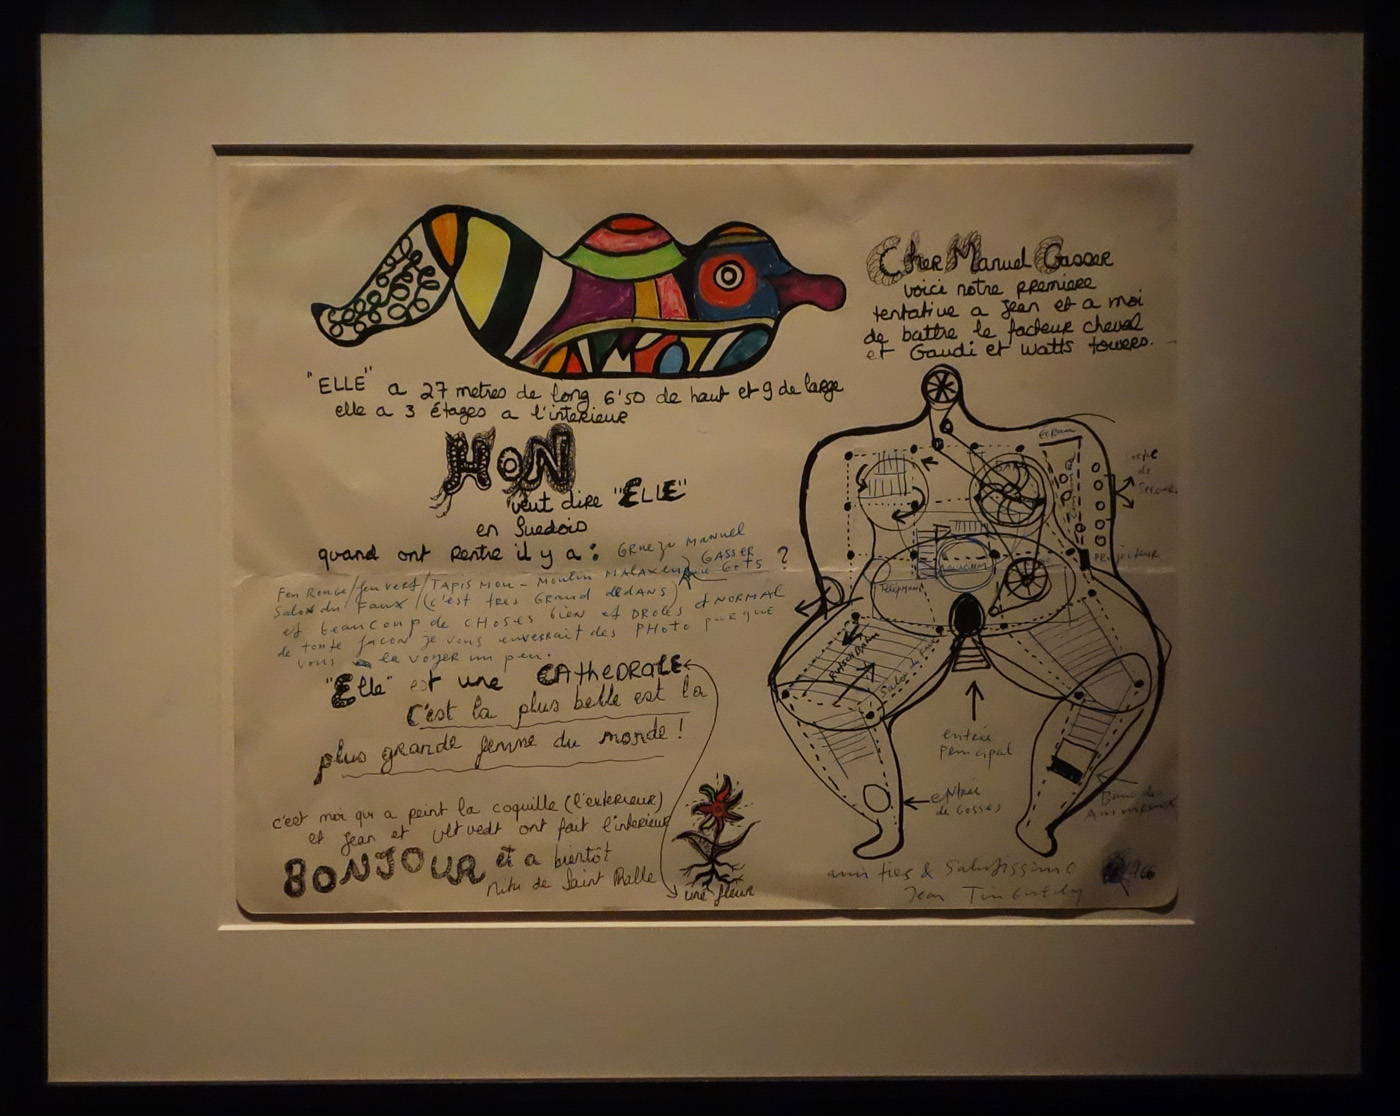 Cher Manuel Gasser
voici notre premiere
tentative a Jean et a moi
de battre le facteur cheval
et Gaudi et Watts towers.
"ELLE" a 27 metres de long 6'50 de haut et 9 de large
elle a 3 étages a l'interieur
HON
veut dire "ELLE"
en Suedois
quand ont rentre il y a :
MANUEL
GASSER
?
Feu Rouge/feu vert/TAPIS MOU - MOULIN MALAXEUR
Salon du Faux / (c'est tres GRAND dedANS)
et beauCOUP de CHOSES bien et DROLES et NORMAL
de toute facon je vous enverrait des PHOTO pour que
vous la voyer un peu.
"Elle" est une CAtheDRale
C'est la plus belle est la
plus grande femme du monde !
c'est moi qui a peint la coquille (l'exterieur)
et Jean et Ultvedt ont fait l'interieur
BONJOUR et a bientôt
Niki de Saint Phalle
une fleur
ECRAN
BAR
AQUARIUM
telephone
projecteur
de
Secours
Salon du Faux
entrée
principal
entrée
de Gosses
Banc des
Amoureux
amities & Salutissimo
Jean Tinguely
1966